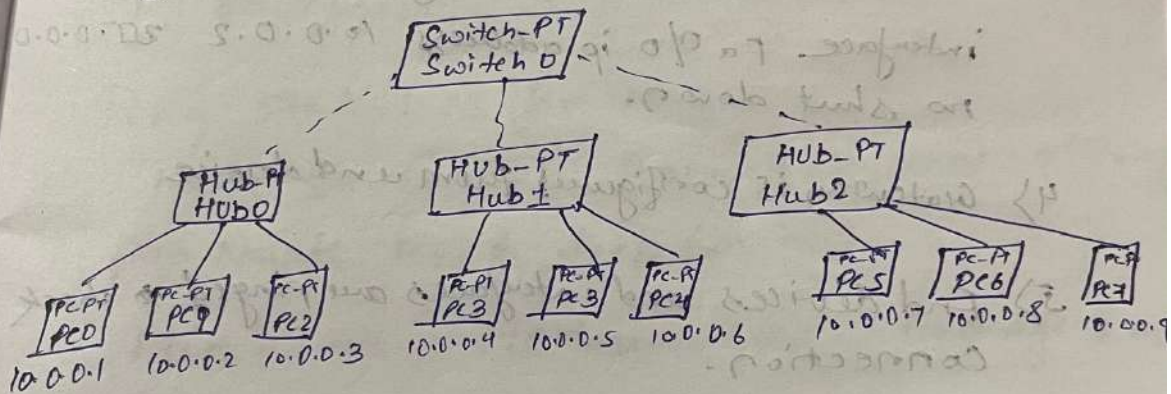 Switch-PT
Switch 0
Hub-P
HUb0
HUb-PT
Hub 1
HUb-PT
Hub2
PC-PT
PC0
PC-PT
PC1
PC-PT
PC2
PC-PT
PC3
PC-PT
PC3
PC-PT
PC4
PC-PT
PC5
PC-PT
PC6
PC-P
PC7
10.0.0.1
10.0.0.2
10.0.0.3
10.0.0.4
10.0.0.5
10.0.0.6
10.0.0.7
10.0.0.8
10.0.0.9